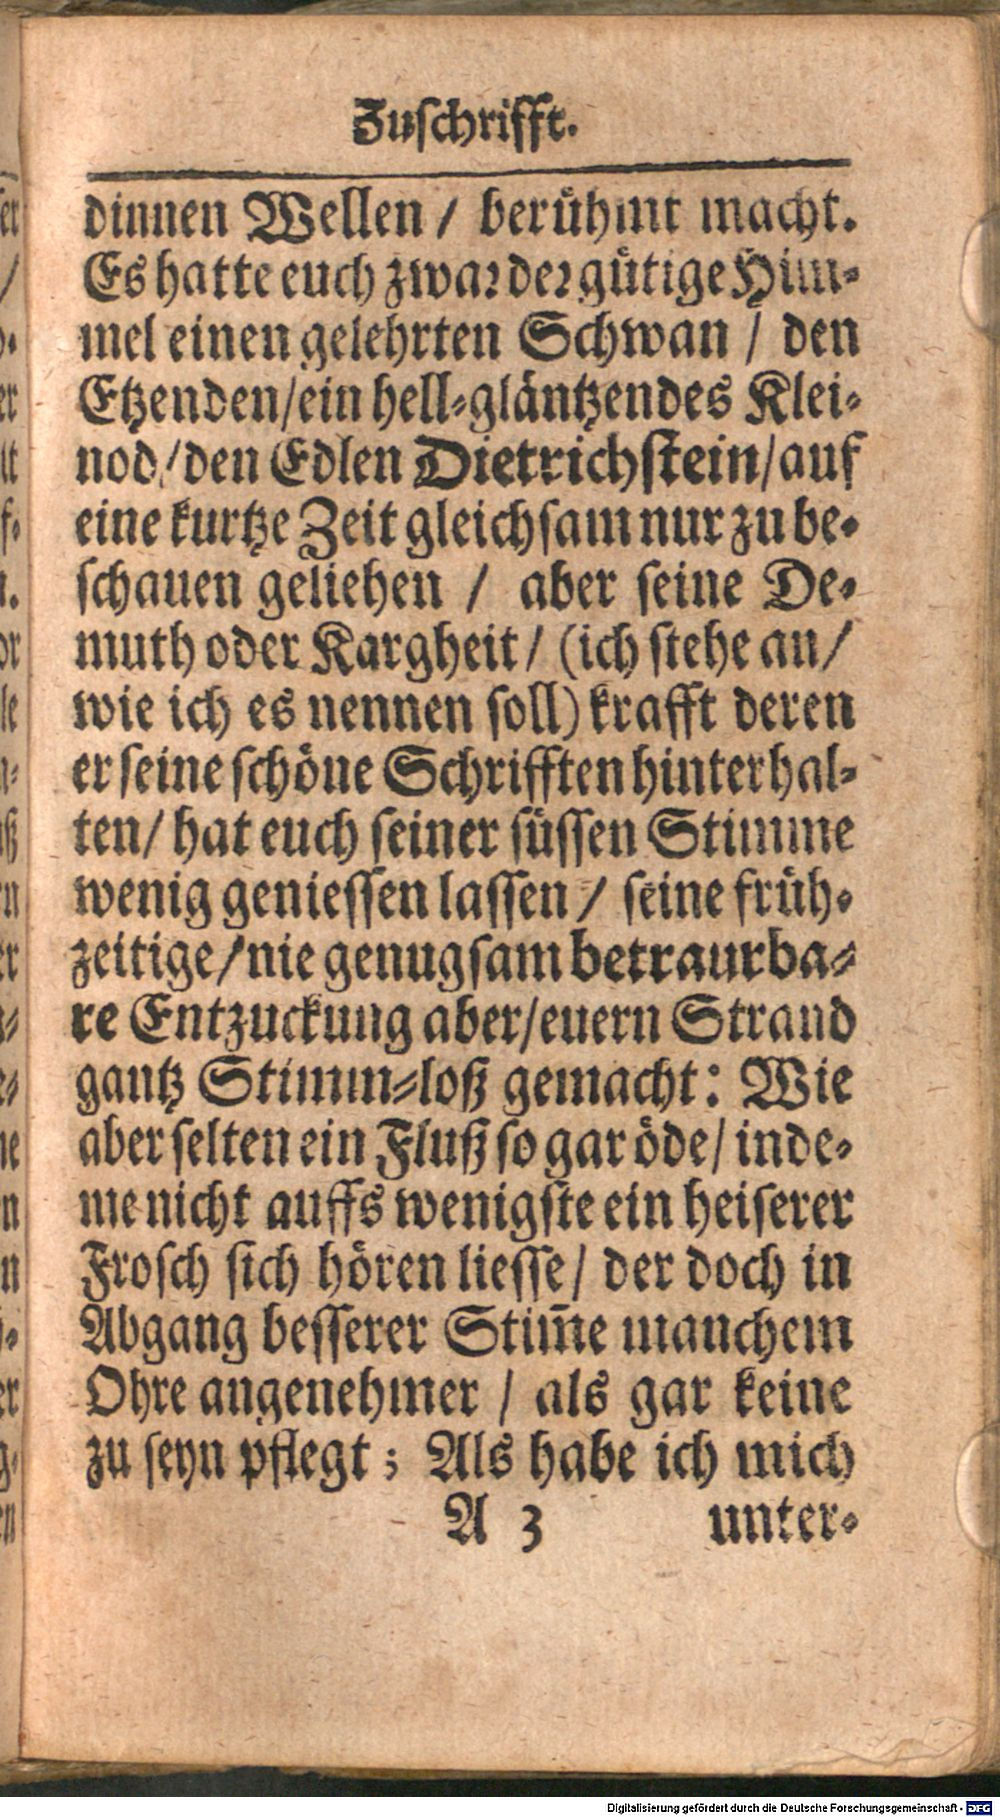 Zuschrifft.
dinnen Wellen / berühmt macht.
Es hatte euch zwar der gütige Him-
mel einen gelehrten Schwan / den
Etzenden/ein hell-gläntzendes Klei-
nod/den Edlen Dietrichstein/auf
eine kurtze Zeit gleichsam nur zu be-
schauen geliehen / aber seine De-
muth oder Kargheit/ (ich stehe an/
wie ich es nennen soll) krafft deren
er seine schöne Schrifften hinterhal-
ten/ hat euch seiner süssen Stimme
wenig geniessen lassen / seine früh-
zeitige/nie genugsam betraurba-
re Entzuckung aber/euern Strand
gantz Stimm-loß gemacht: Wie
aber selten ein Fluß so gar öde/ inde-
me nicht auffs wenigste ein heiserer
Frosch sich hören liesse/ der doch in
Abgang besserer Stim̄e manchem
Ohre angenehmer / als gar keine
zu seyn pflegt; Als habe ich mich
A 3 unter-
Digitalisierung gefördert durch die Deutsche Forschungsgemeinschaft - DFG